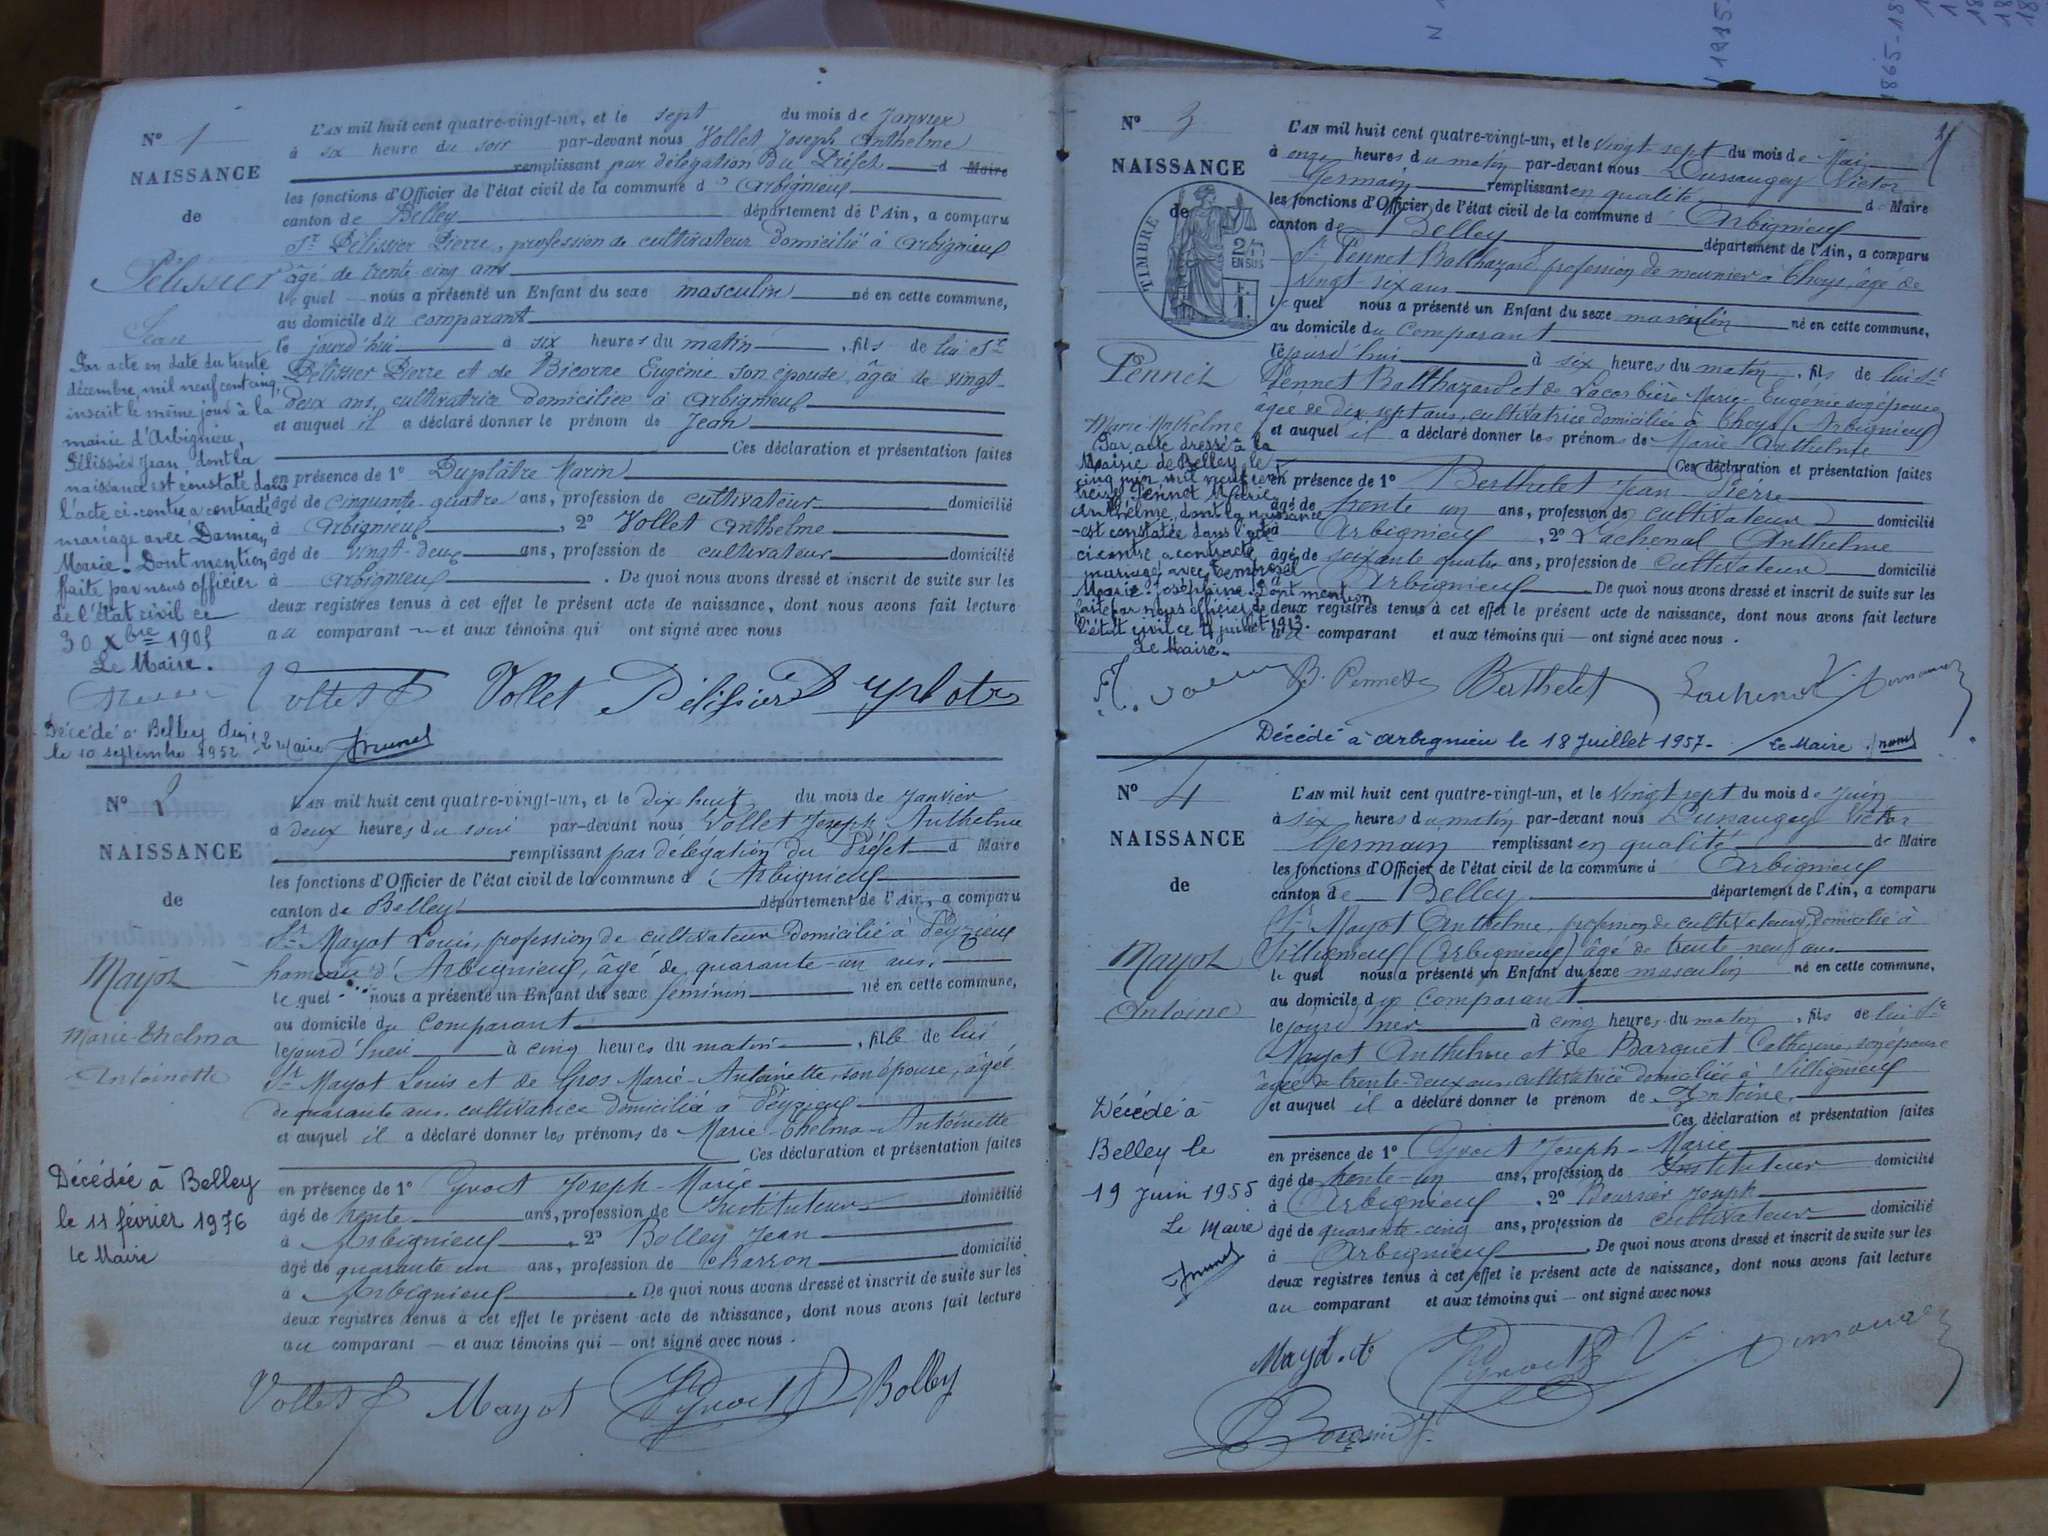 N° 1
NAISSANCE
de
Pélissier
Jean
Par acte en date du trente
décembre, mil neuf cent cinq,
inscrit le même jour à la
mairie d'Arbignieu,
Pélissier Jean, dont la
naissance est constaté dans
l'acte ci-contre a contracté
mariage avec Damian
Marie. Dont mention
faite par nous officier
de l'état civil ce
30 Xbre 1905
Le Maire.
Décédé à Belley
le 10 septembre 1952 Le Maire
L'AN mil huit cent quatre-vingt-un, et le sept du mois de Janvier
à six heure du soir par-devant nous Vollet Joseph Anthelme
remplissant par délégation du Préfet d Maire
les fonctions d'Officier de l'état civil de la commune d' Arbignieux
canton de Belley département de l'Ain, a comparu
Sr Pélissier Pierre, profession de cultivateur domicilié à Arbignieux
âgé de trente cinq ans
lequel nous a présenté un Enfant du sexe masculin né en cette commune,
au domicile du comparant
le jourd'hui à six heures du matin, fils de lui Sr
Pélissier Pierre et de Bicorne Eugénie son épouse, âgée de vingt-
deux ans, cultivatrice domiciliée à Arbignieux
et auquel il a déclaré donner le prénom de Jean
Ces déclaration et présentation faites
en présence de 1° Duplâtre Marin
âgé de cinquante-quatre ans, profession de cultivateur domicilié
à Arbignieux, 2° Vollet Anthelme
âgé de vingt-deux ans, profession de cultivateur domicilié
à Arbignieux. De quoi nous avons dressé et inscrit de suite sur les
deux registres tenus à cet effet le présent acte de naissance, dont nous avons fait lecture
au comparant et aux témoins qui ont signé avec nous
Vollet J Vollet Pélissier Duplatre
N° 2
NAISSANCE
de
Mayot
Marie-Thelma
Antoinette
Décédée à Belley
le 11 février 1976
le Maire
L'AN mil huit cent quatre-vingt-un, et le dix huit du mois de Janvier
à deux heures du soir par-devant nous Vollet Joseph Anthelme
remplissant par délégation du Préfet d Maire
les fonctions d'Officier de l'état civil de la commune d' Arbignieux
canton de Belley département de l'Ain, a comparu
Sr Mayot Louis, profession de cultivateur domicilié à Peyzieux
hameau d'Arbignieux, âgé de quarante-un ans,
lequel nous a présenté un Enfant du sexe féminin né en cette commune,
au domicile du comparant
le jourd'hui à cinq heures du matin, fille de lui
Sr Mayot Louis et de Gros Marie-Antoinette, son épouse, âgée
de quarante ans, cultivatrice domiciliée à Peyzieux
et auquel il a déclaré donner les prénoms de Marie-Thelma-Antoinette
Ces déclaration et présentation faites
en présence de 1° Joseph-Marie
âgé de trente ans, profession de Instituteur domicilié
à Arbignieux, 2° Bolley Jean
âgé de quarante un ans, profession de charron domicilié
à Arbignieux. De quoi nous avons dressé et inscrit de suite sur les
deux registres tenus à cet effet le présent acte de naissance, dont nous avons fait lecture
au comparant et aux témoins qui ont signé avec nous.
Vollet J Mayot Bolley
N° 3
NAISSANCE
de
TIMBRE
Pennet
Marie Anthelme
Par acte dressé à la
Mairie de Belley le
cinq juin mil neuf cent
treize Pennet Marie
Anthelme, dont la naissance
est constatée dans l'acte
ci contre a contracté
mariage avec
Marie-Joséphine. Dont mention
faite par nous officier de
l'état civil ce 4 juillet 1913.
Le Maire.
L'AN mil huit cent quatre-vingt-un, et le vingt sept du mois de Mai
à onze heures du matin par-devant nous Dussaugey Victor
Germain remplissant en qualité de Maire
les fonctions d'Officier de l'état civil de la commune d' Arbignieux
canton de Belley département de l'Ain, a comparu
Sr Pennet Balthazard, profession de meunier à Thoys, âgé de
vingt-six ans
lequel nous a présenté un Enfant du sexe masculin né en cette commune,
au domicile du comparant
le jourd'hui à six heures du matin, fils de lui Sr
Pennet Balthazard et de Lacorbière Marie-Eugénie son épouse
âgée de dix sept ans, cultivatrice domiciliée à Thoys (Arbignieux)
et auquel il a déclaré donner les prénoms de Marie Anthelme
Ces déclaration et présentation faites
en présence de 1° Berthelet Jean-Pierre
âgé de trente un ans, profession de cultivateur domicilié
à Arbignieux, 2° Lachenal Anthelme
âgé de soixante quatre ans, profession de cultivateur domicilié
à Arbignieux De quoi nous avons dressé et inscrit de suite sur les
deux registres tenus à cet effet le présent acte de naissance, dont nous avons fait lecture
au comparant et aux témoins qui ont signé avec nous.
B. Pennet Berthelet Lachenal
Décédé à Arbignieu le 18 Juillet 1957. Le Maire
N° 4
NAISSANCE
de
Mayot
Antoine
Décédé à
Belley le
19 Juin 1955
Le Maire
L'AN mil huit cent quatre-vingt-un, et le vingt sept du mois de Juin
à six heures du matin par-devant nous Dussaugey Victor
Germain remplissant en qualité de Maire
les fonctions d'Officier de l'état civil de la commune d' Arbignieux
canton de Belley département de l'Ain, a comparu
Sr Mayot Anthelme, profession de cultivateur domicilié à
Sillignieux (Arbignieux) âgé de trente neuf ans
lequel nous a présenté un Enfant du sexe masculin né en cette commune,
au domicile du comparant
le jourd'hier à cinq heures du matin, fils de lui Sr
Mayot Anthelme et de Marguet Catherine, son épouse
âgée de trente-deux ans, cultivatrice domiciliée à Sillignieux
et auquel il a déclaré donner le prénom de Antoine,
Ces déclaration et présentation faites
en présence de 1° Joseph-Marie
âgé de trente-un ans, profession de Instituteur domicilié
à Arbignieux, 2° Joseph
âgé de quarante-cinq ans, profession de cultivateur domicilié
à Arbignieux. De quoi nous avons dressé et inscrit de suite sur les
deux registres tenus à cet effet le présent acte de naissance, dont nous avons fait lecture
au comparant et aux témoins qui ont signé avec nous
Mayot